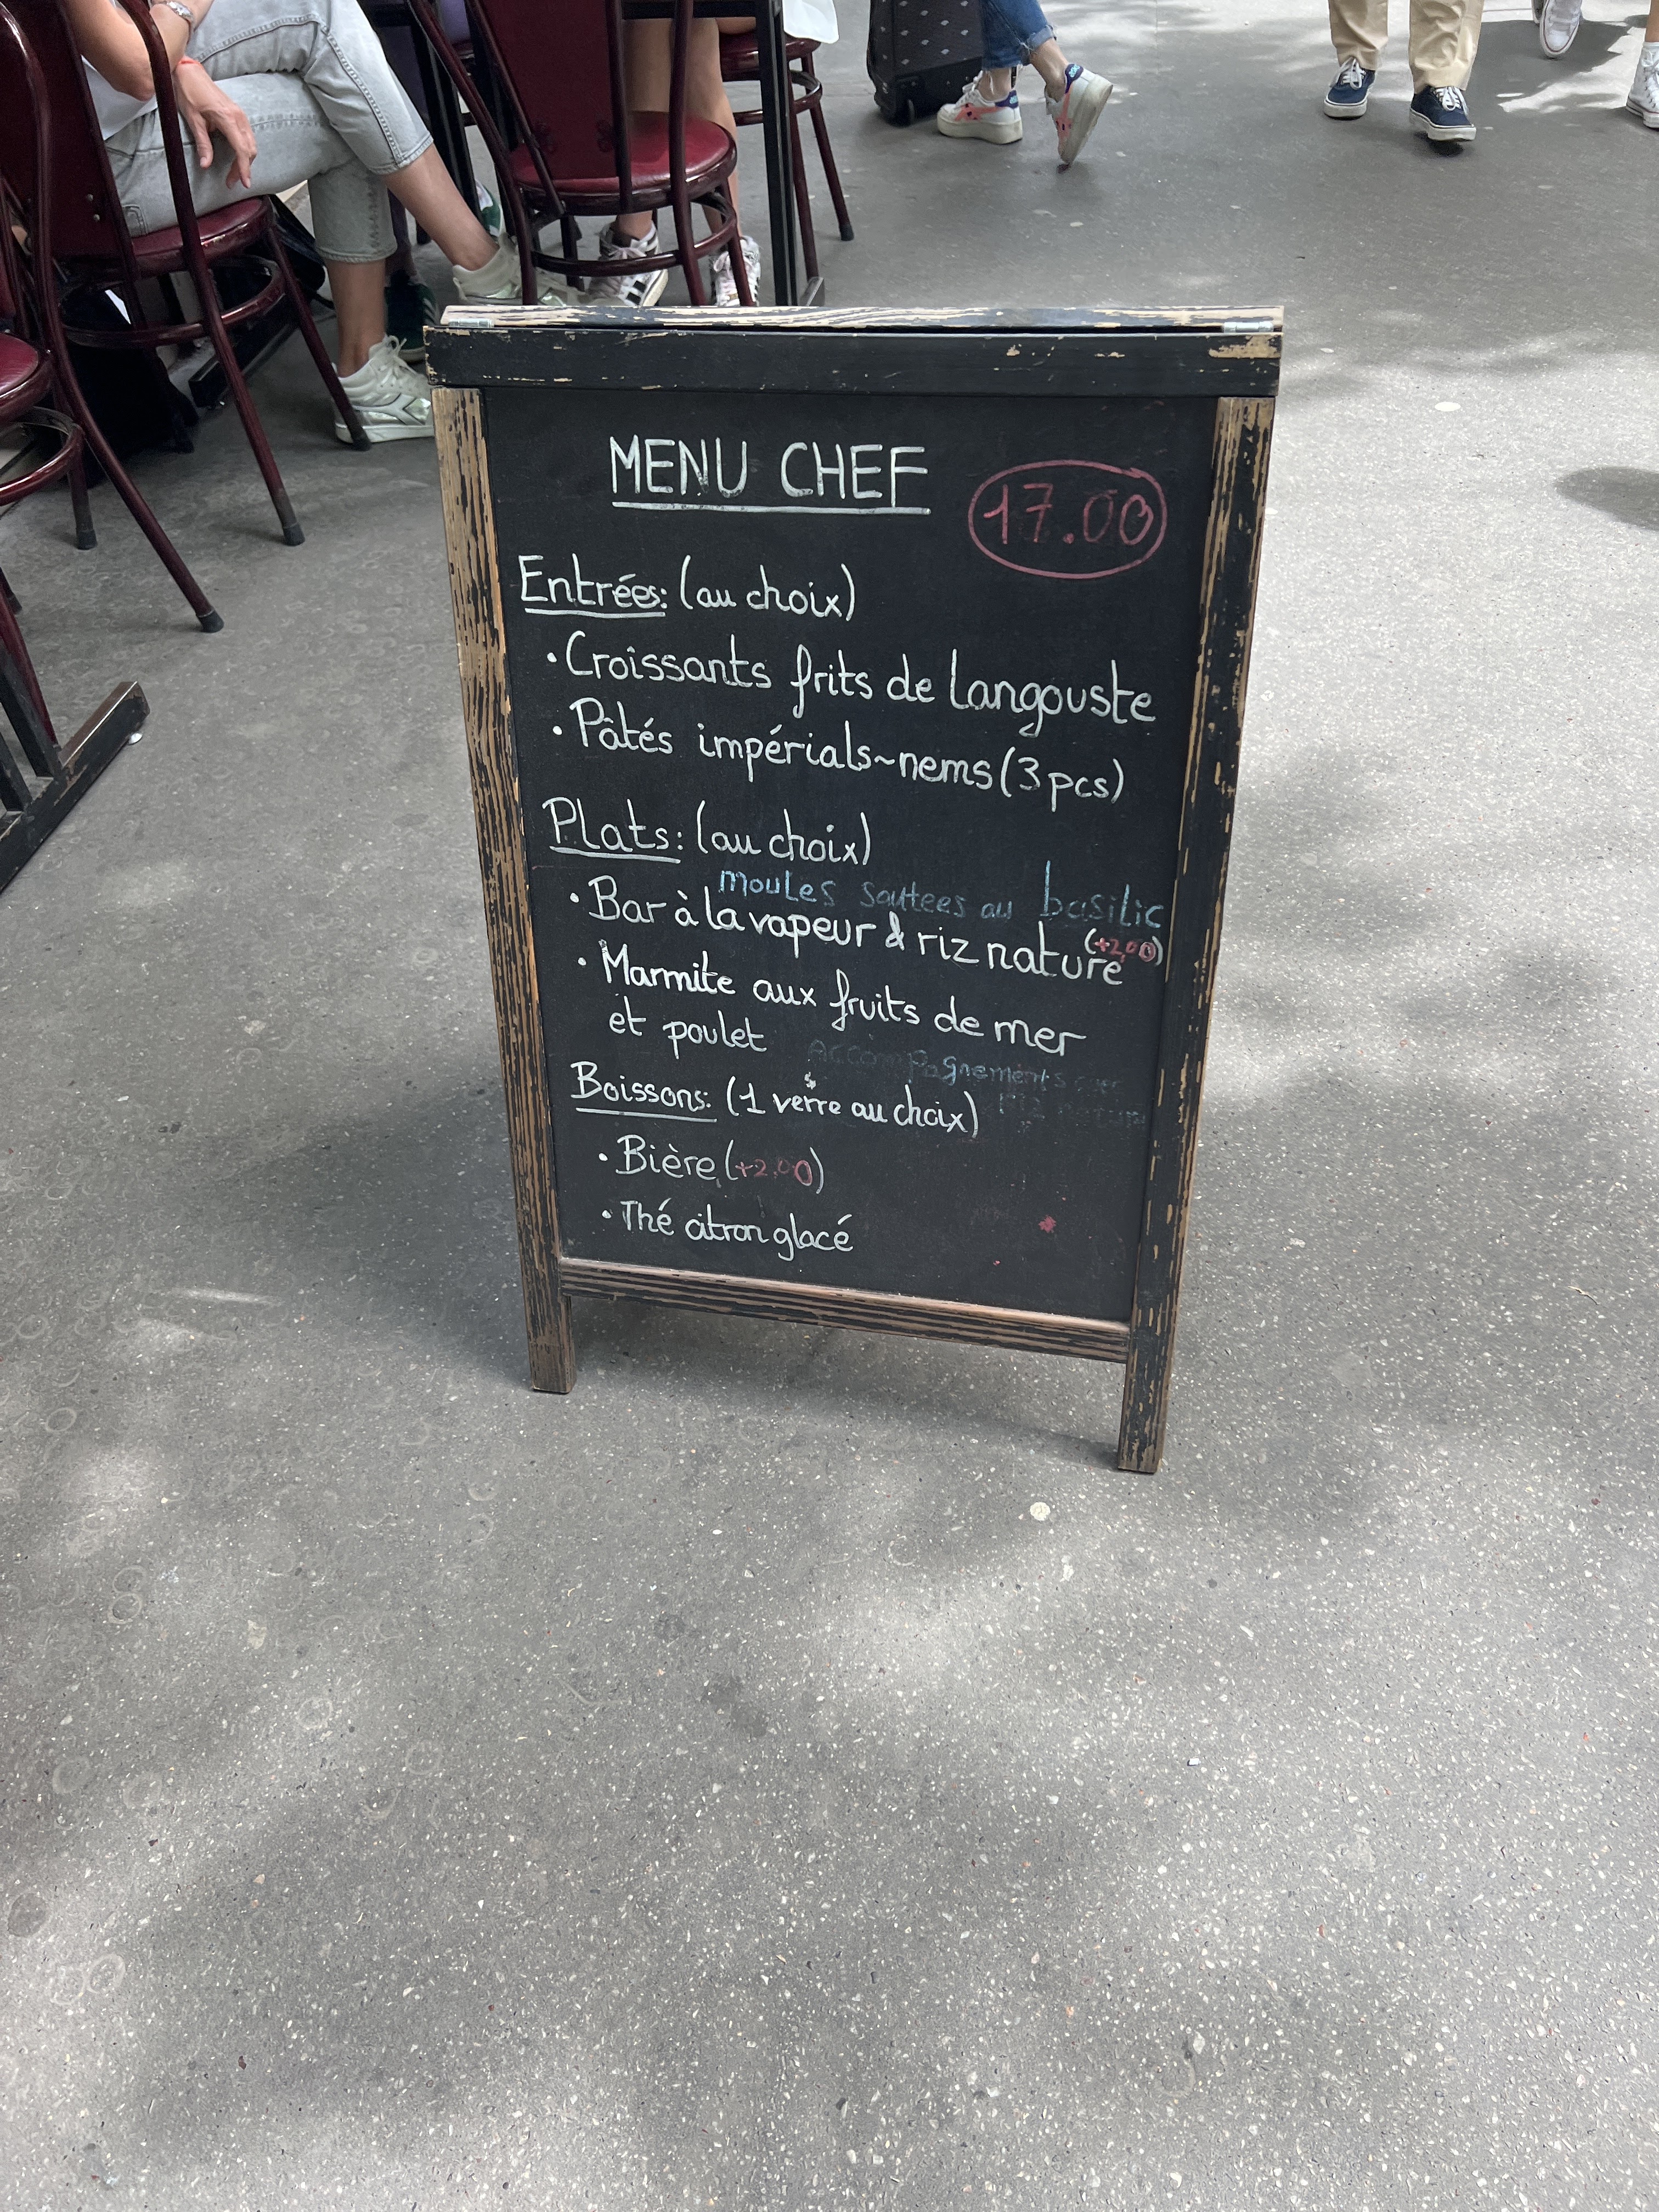 MENU CHEF
17.00
Entrées: (au choix)
• Croissants frits de langouste
• Pâtés impérials~nems (3 pcs)
Plats: (au choix)
moules sautees au basilic
• Bar à la vapeur & riz nature (+2,00)
• Marmite aux fruits de mer
et poulet
Accompagnements
Boissons: (1 verre au choix)
• Bière (+2,00)
• Thé citron glacé